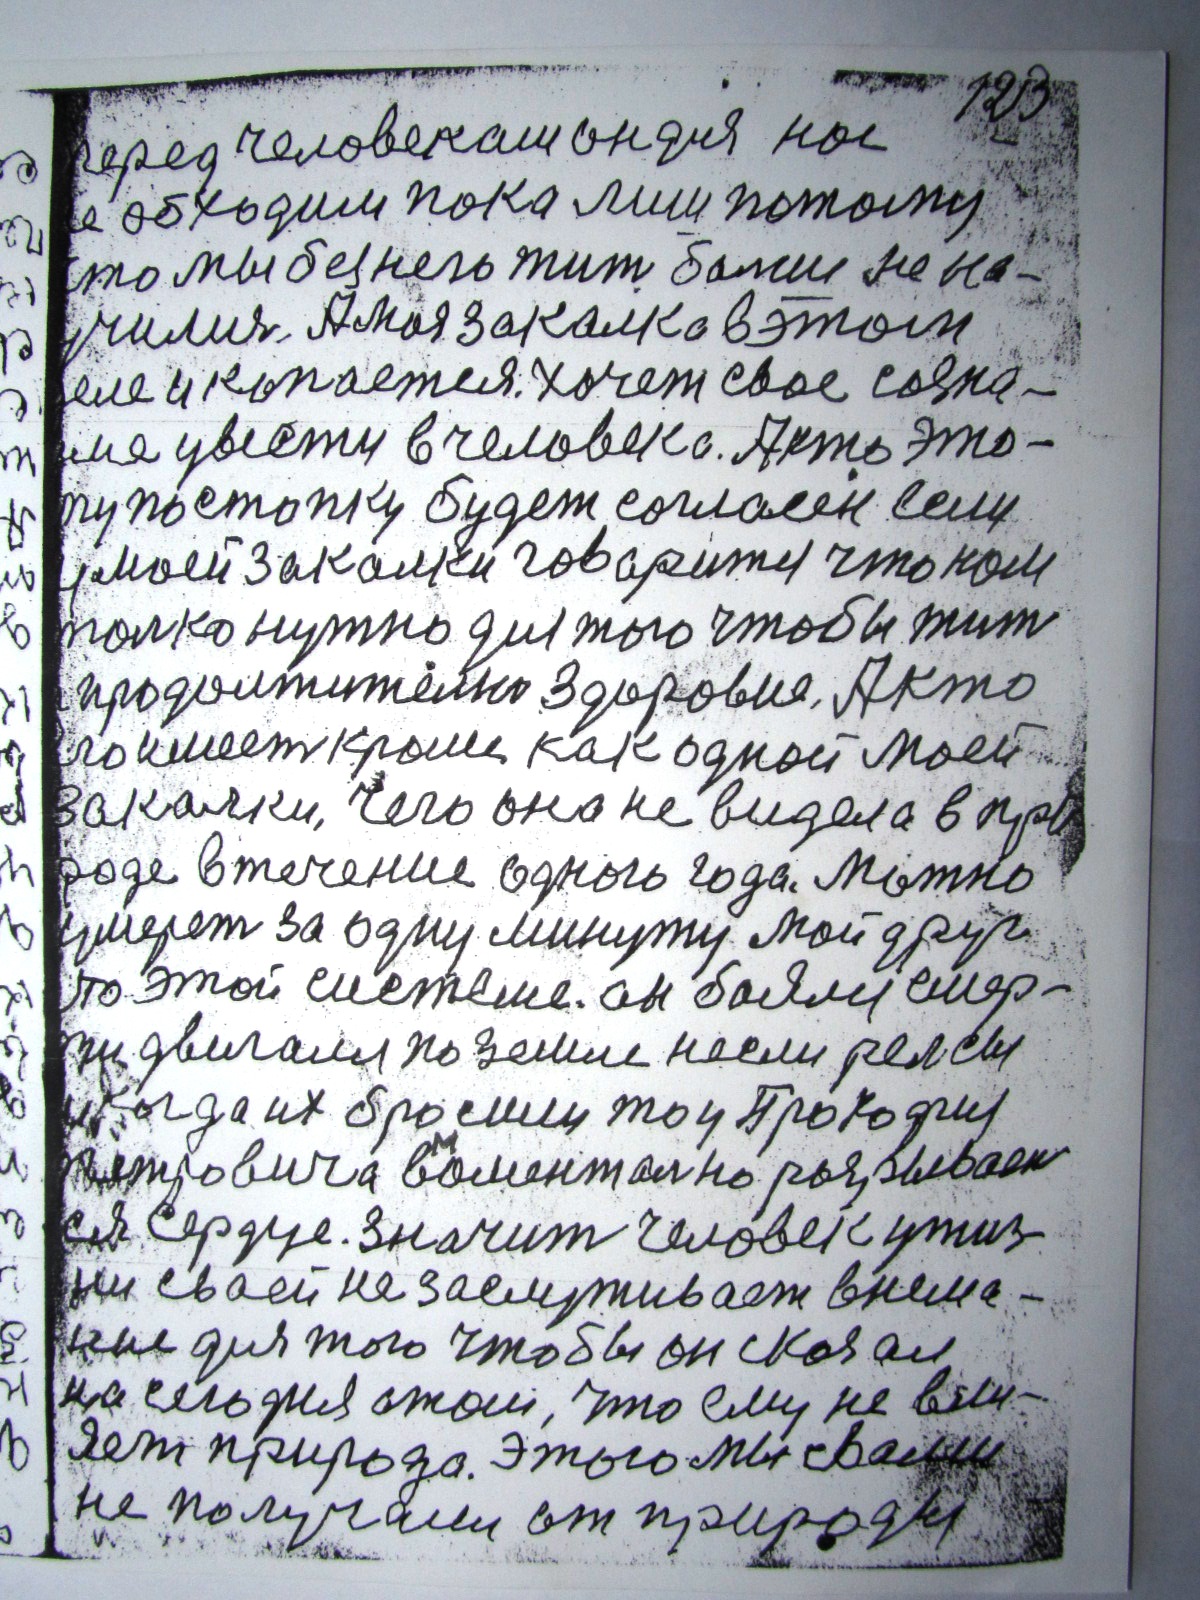 123
перед человекам он для нас
не обходим пока лиш потому
что мы без него жит болии не на-
училия. А моя закалка в этом
деле и копается. Хочет свое созна-
ние увести в человека. А кто это-
му поступку будет согласен если
у моей закалки говорится что нам
толко нужно для того чтобы жит
продолжително здоровие. А кто
его имеет кроме как одной моей
закалки, чего она не видела в при
роде втечение одного года. Можно
умерет за одну минуту мой друг
по этой системе. он боялся смер-
ти двигался по земле несли релсы
и когда их бросили то у Прокофия
Петровича воментално разрывает
ся сердце. Значит человек у жиз-
ни сваей не заслуживает внима-
ние для того чтобы он сказал
на сегодня стоп, что ему не вли-
яет природа. Этого мы с вами
не получали от природы